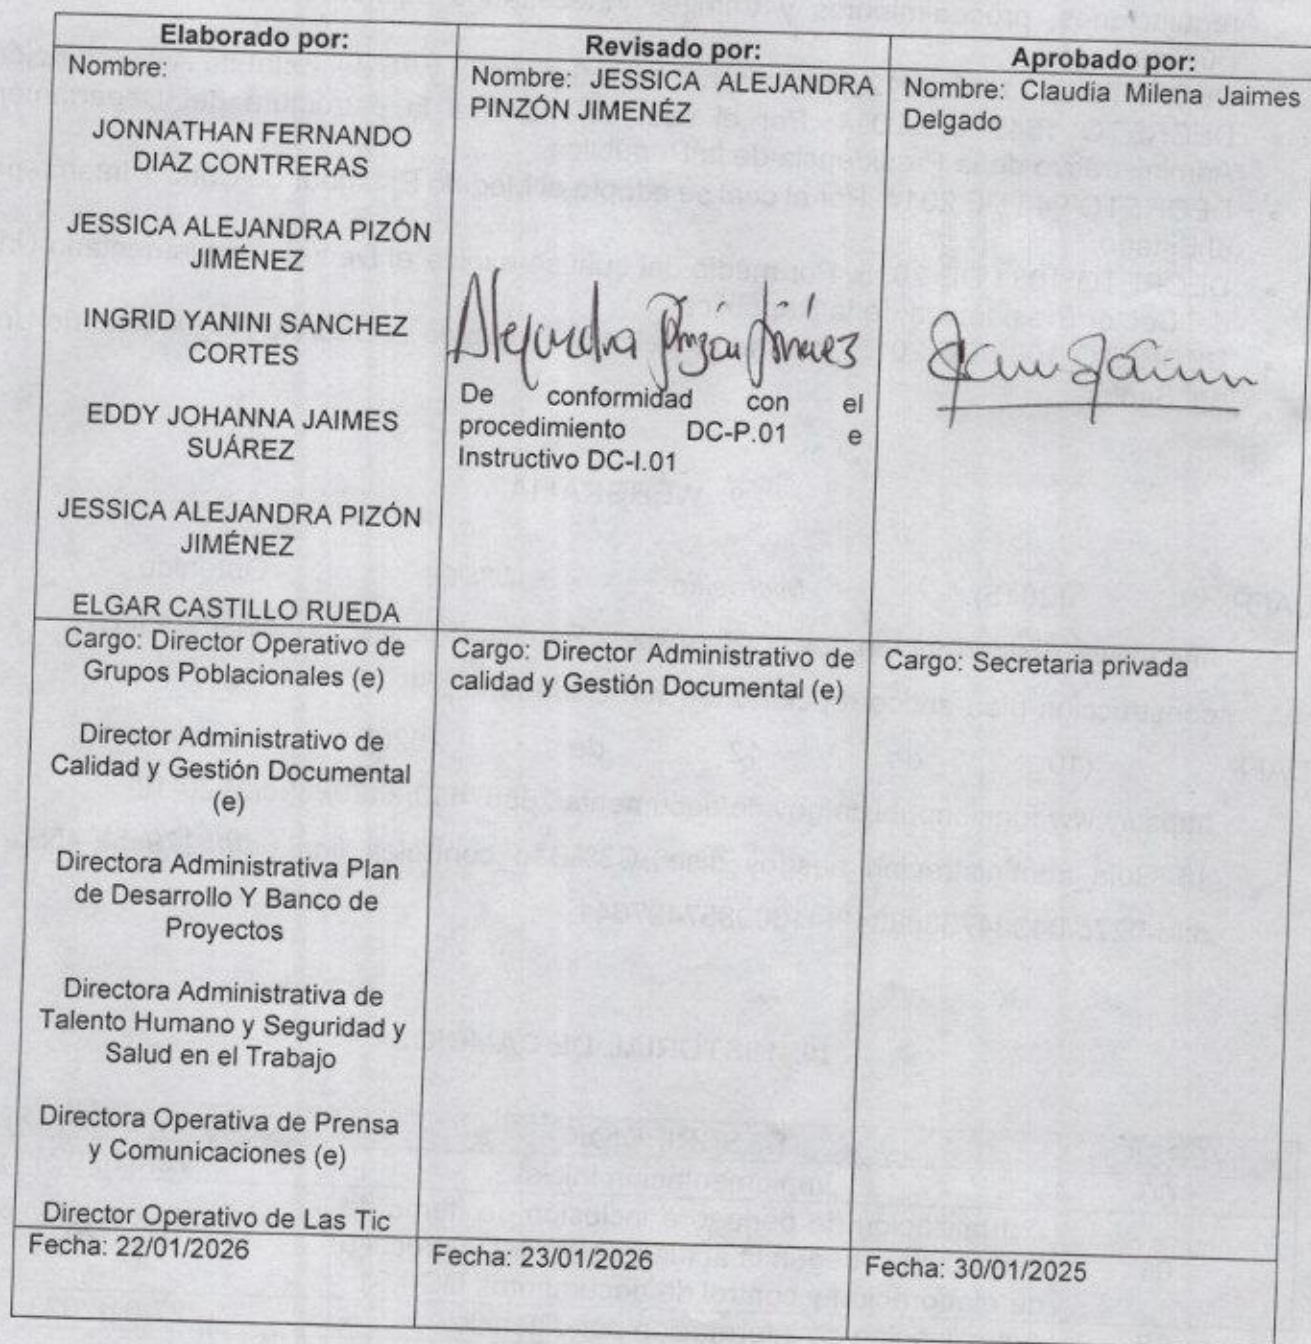 Elaborado por:
Nombre:
JONNATHAN FERNANDO
DIAZ CONTRERAS
JESSICA ALEJANDRA PIZÓN
JIMÉNEZ
INGRID YANINI SANCHEZ
CORTES
EDDY JOHANNA JAIMES
SUÁREZ
JESSICA ALEJANDRA PIZÓN
JIMÉNEZ
ELGAR CASTILLO RUEDA
Revisado por:
Nombre: JESSICA ALEJANDRA
PINZÓN JIMENÉZ
Alejandra Pinzón Jiménez
De conformidad con el
procedimiento DC-P.01 e
Instructivo DC-I.01
Aprobado por:
Nombre: Claudia Milena Jaimes
Delgado
Cargo: Director Operativo de
Grupos Poblacionales (e)
Director Administrativo de
Calidad y Gestión Documental
(e)
Directora Administrativa Plan
de Desarrollo Y Banco de
Proyectos
Directora Administrativa de
Talento Humano y Seguridad y
Salud en el Trabajo
Directora Operativa de Prensa
y Comunicaciones (e)
Director Operativo de Las Tic
Cargo: Director Administrativo de
calidad y Gestión Documental (e)
Cargo: Secretaria privada
Fecha: 22/01/2026
Fecha: 23/01/2026
Fecha: 30/01/2025